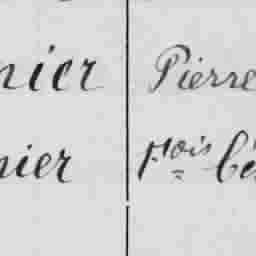 nier Pierre
nier Fçois